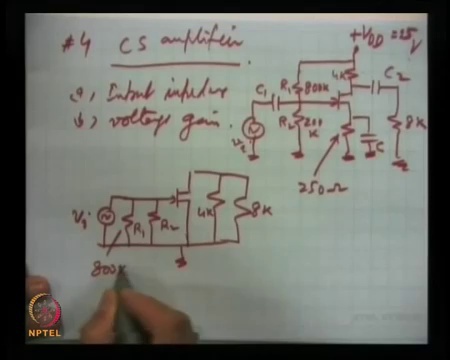 #4 CS amplifier.
a, Input impedance
b, voltage gain.
+VDD = 25V
4K
C2
C1
R1 800K
R2 200K
8K
C
250Ω
Vi
R1
R2
4K
8K
800K
NPTEL